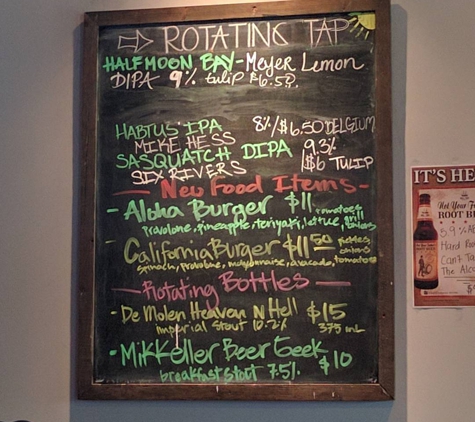 ⇨ ROTATING TAP
HALFMOON BAY - Meyer Lemon
DIPA 9% tulip $6.50.
HABTUS IPA 8%/$6.50 BELGIUM
MIKE HESS
SASQUATCH DIPA 9.3%
SIX RIVERS $6 TULIP
- New Food Items -
- Aloha Burger $11 tomatoes
provolone, pineapple, teriyaki, lettuce, grill onions
- California Burger $11.50 pickles, onions
spinach, provolone, mayonnaise, avocado, tomatoes
- Rotating Bottles -
- De Molen Heaven N Hell $15
imperial stout 10.2% 375 mL
- Mikkeller Beer Geek $10
breakfast stout 7.5%
IT'S HE
Not Your F
ROOT B
5.9% AB
Hard Roo
Can't Ta
The Alco